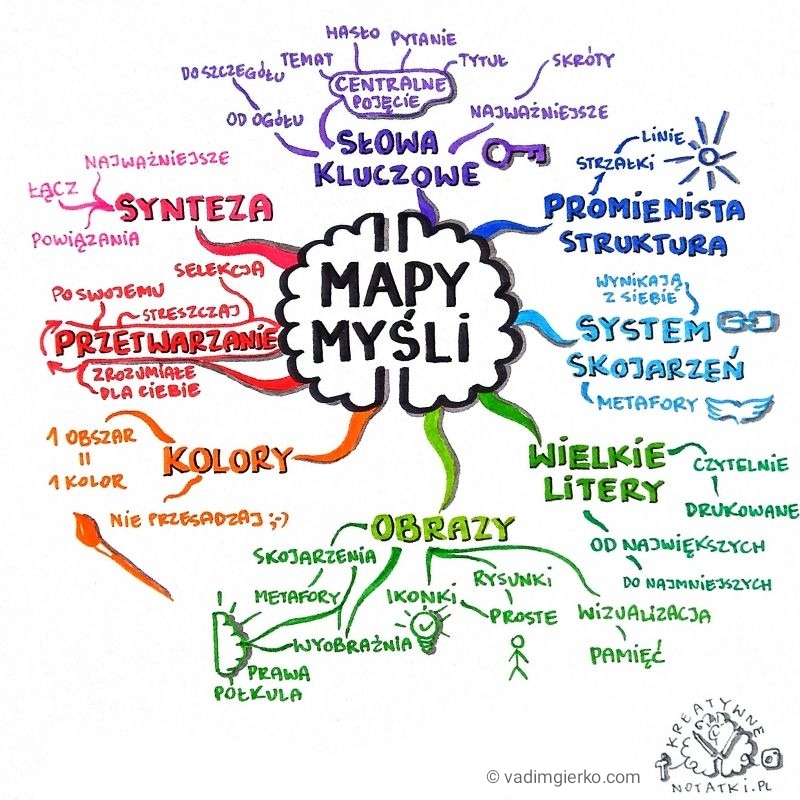 MAPY
MYŚLI
SŁOWA
KLUCZOWE
CENTRALNE
POJĘCIE
TEMAT
HASŁO
PYTANIE
TYTUŁ
DO SZCZEGÓŁU
OD OGÓŁU
SKRÓTY
NAJWAŻNIEJSZE
PROMIENISTA
STRUKTURA
STRZAŁKI
LINIE
SYSTEM
SKOJARZEŃ
WYNIKAJĄ
Z SIEBIE
METAFORY
WIELKIE
LITERY
CZYTELNIE
DRUKOWANE
OD NAJWIĘKSZYCH
DO NAJMNIEJSZYCH
OBRAZY
SKOJARZENIA
METAFORY
WYOBRAŹNIA
PRAWA
PÓŁKULA
IKONKI
RYSUNKI
PROSTE
WIZUALIZACJA
PAMIĘĆ
KOLORY
1 OBSZAR
=
1 KOLOR
NIE PRZESADZAJ ;-)
PRZETWARZANIE
SELEKCJA
PO SWOJEMU
STRESZCZAJ
ZROZUMIAŁE
DLA CIEBIE
SYNTEZA
NAJWAŻNIEJSZE
ŁĄCZ
POWIĄZANIA
KREATYWNE
NOTATKI.PL
© vadimgierko.com